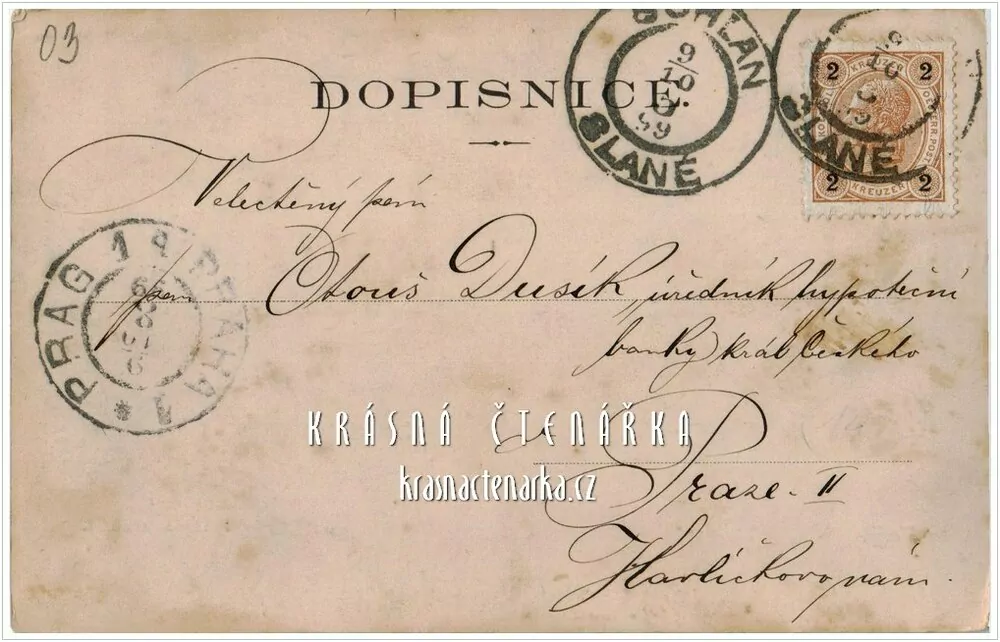 03
DOPISNICE.
SCHLAN
9/10
99
SLANÉ
SLANÉ
2 KREUZER 2
2 KREUZER 2
Velectěný pán
pan Otouš Dusík, úředník hypoteční
banky král. českého
PRAG 1 PRAHA 1
KRÁSNÁ ČTENÁŘKA
krasnactenarka.cz
Praze - II
Havlíčkovo nám.